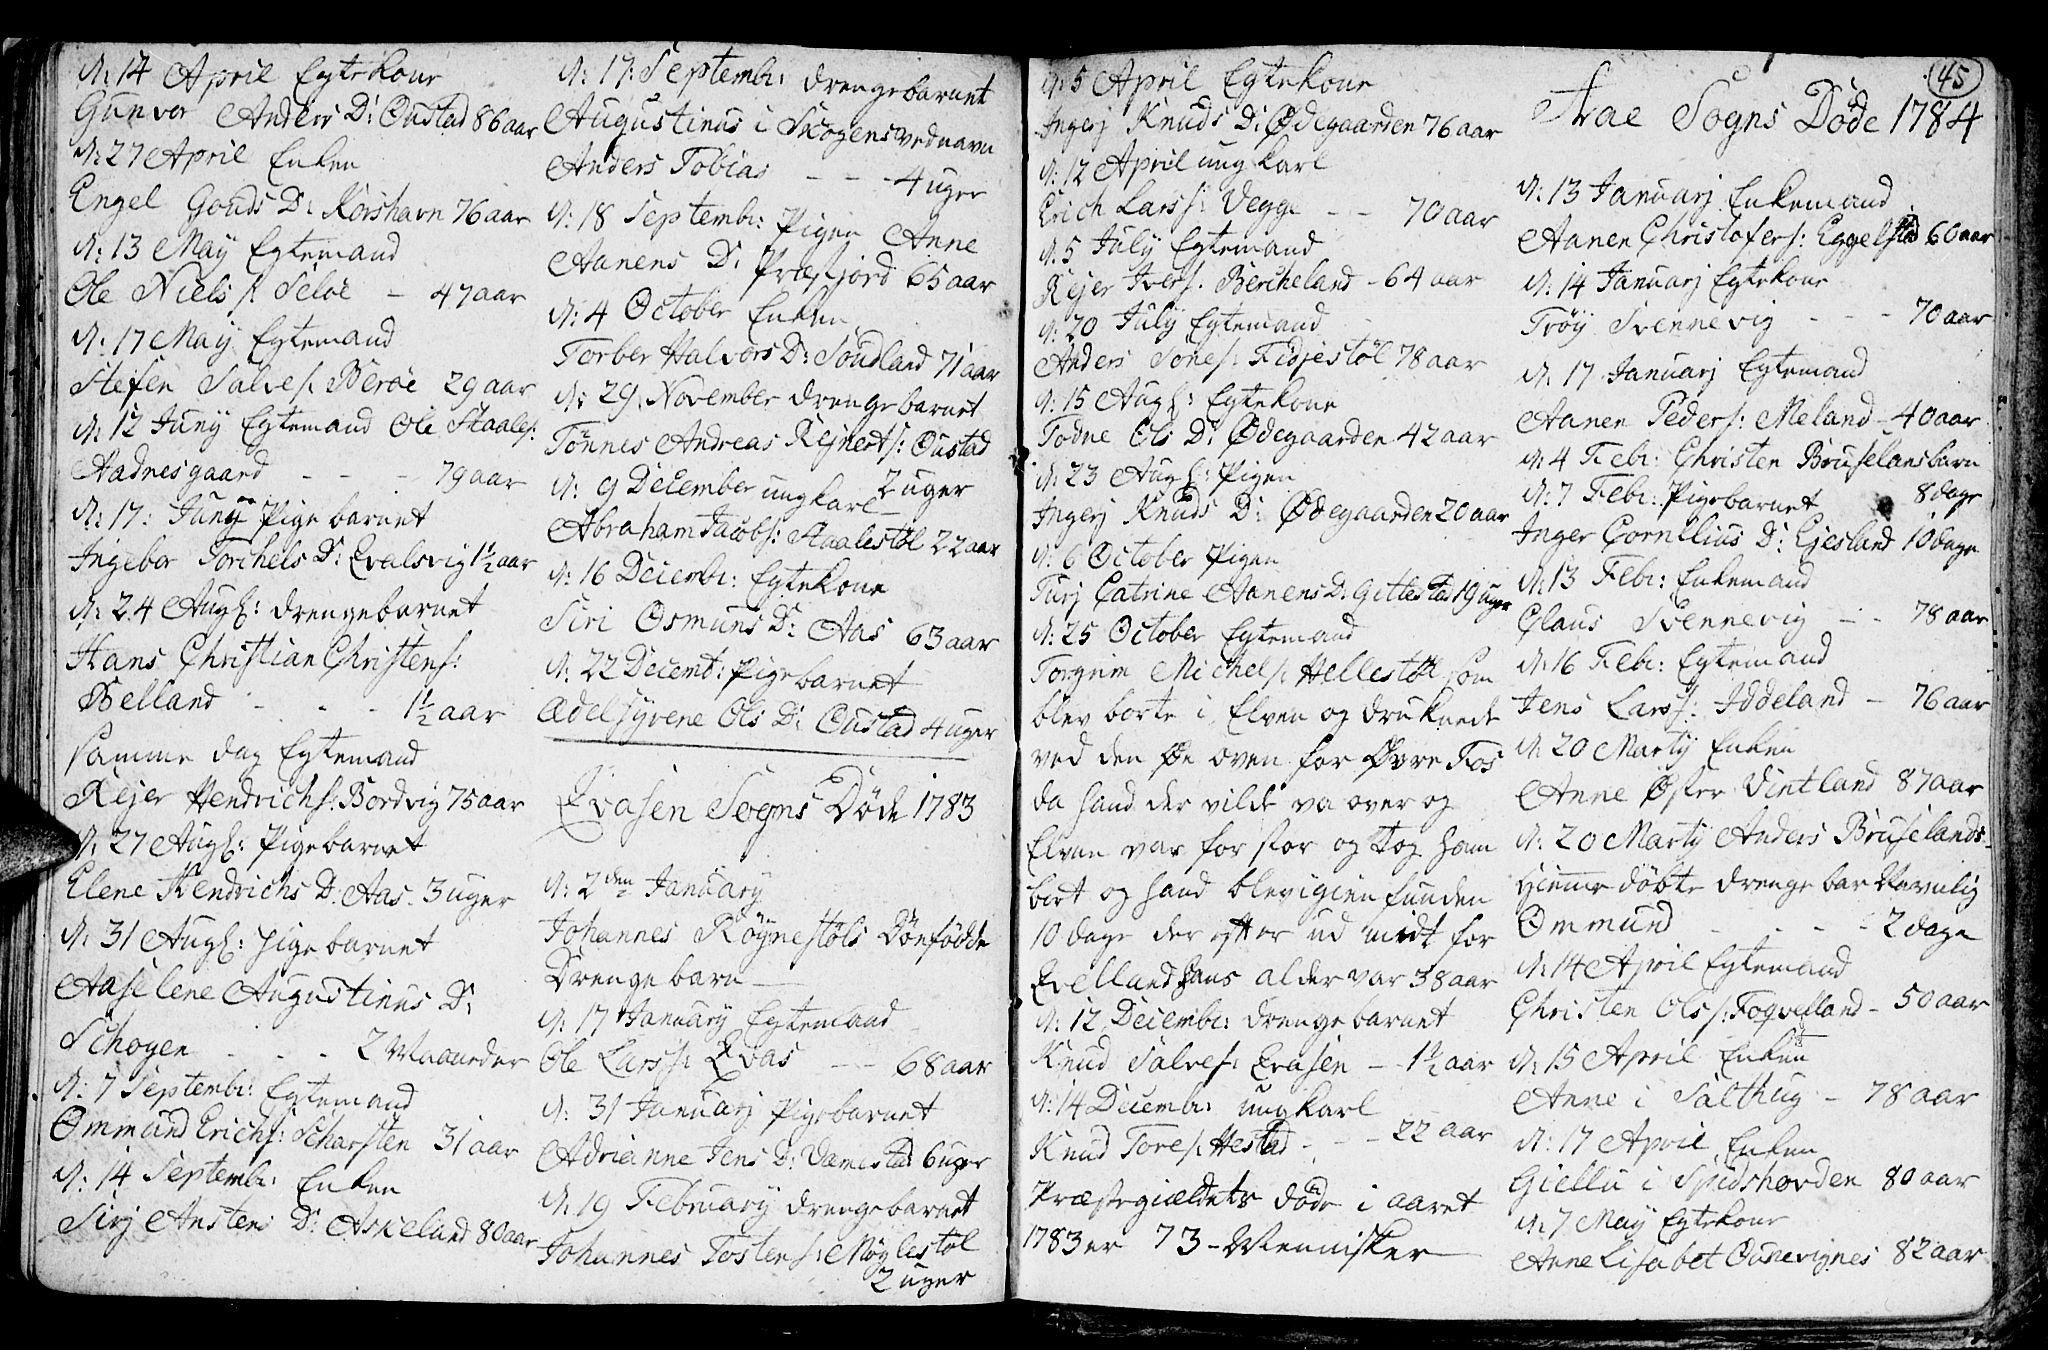 N: 14 April Egtekone
Gunvor Anders D: Oustad 86 aar
N: 27 April Enken
Engel Gouds D: Korshavn 76 aar
N: 13 May Egtemand
Ole Niels s: Seløe - 47 aar
N: 17 May Egtemand
Stefen Salves: Berøe 29 aar
N: 12 Juny Egtemand Ole Staales:
Aadnesgaard - - - 79 aar
N: 17: Juny Pige barnet
Ingebor Torchels D: Qvalsvig 1½ aar
N: 24 Aug: drengebarnet
Hans Christian Christens:
Belland - - - 1½ aar
samme dag Egtemand
Rejer Hendrichs: Bordvig 75 aar
N: 27 Aug: Pigebarnet
Elene Hendrichs D: Aas - 3 uger
N: 31 Aug: Pige barnet
Aaselene Augustinus D:
Schogen - - - 2 Maaneder
N: 7 Septembr: Egtemand
Ommund Erichs: Scharsten 31 aar
N: 14 Septembr: Enken
Sirj Anstens D: Askeland 80 aar
N: 17: Septembr: drengebarnet
Augustinus i Skogens ved navn
Anders Tobias - - - 4 uger
N: 18 Septembr: Pigen Anne
Aanens D: Præsfjord 65 aar
N: 4 October Enken
Torber Halvors D: Soudland 71 aar
N: 29 November drengebarnet
Tönnes Andreas Rejnerts: Oustad
2 uger
N: 9 December ungkarl
Abraham Jacobs: Staalestøl 22 aar
N: 16 Decembr: Egtekone
Siri Osmuns D: Aas 63 aar
N: 22 Decembr: Pigebarnet
Ædelsyrene Ols D: Oustad 4 uger
Qvasen Sogns Døde 1783
N: 2den January
Johannes Röynestöls Dönfødde
Drengebarn
N: 17 January Egtemand
Ole Larss: Qvas - - 68 aar
N: 31 Januarj Pigebarnet
Adrianne Jens D: Vamestad 6 uger
N: 19 February drengebarnet
Johannes Tostens: Møglestøl
2 uger
N: 5 April Egtekone
Ingerj Knuds D: Ødegaarden 76 aar
N: 12 April ung karl
Erich Larss: Vegge - - 70 aar
N: 5 July Egtemand
Rejer Ivers: Bercheland - 64 aar
N: 20 July Egtemand
Anders Tones: Fidjestøl 78 aar
N: 15 Aug: Egtekone
Todne Ols D: Ødegaarden 42 aar
N: 23 Aug: Pigen
Ingerj Knuds D: Ødegaarden 20 aar
N: 6 October Pigen
Turj Catrine Aanens D: Gittlestad 19 uger
N: 25 October Egtemand
Torgrim Michels: Hellestøl som
blev borte i Elven og druknede
ved den Øe oven for Øvre Fos
da hand der vilde va over og
Elven var for stor og tog ham
bort og hand blev igien funden
10 dage der efter ud midt for
Qvelland hans alder var 38 aar
N: 12 Decembr: drengebarnet
Knud Salves: Qvasen - 1½ aar
N: 14 Decembr: ungkarl
Knud Tores: Hestad - - - 22 aar
Præstegieldets døde i aaret
1783 er 73 - Mennisker
45
Aae Sogns Döde 1784
N: 13 Januarj Enkemand
Aanen Christofers: Eggelstad 60 aar
N: 14 Januarj Egtekone
Tröy Svennevig - - - 70 aar
N: 17 Januarj Egtemand
Aanen Peders: Meland - 40 aar
N: 4 Febr: Christen Bruselans barn
8 dage
N: 7 Febr: Pigebarnet
Inger Cornelius D: Ejesland 10 dage
N: 13 Febr: Enkemand
Claus Svennevig - - 78 aar
N: 16 Febr: Egtemand
Jens Larss: Iddeland - 76 aar
N: 20 Marty Enken
Anne Øster Vintland 87 aar
N: 20 Marty Anders Bruselands-
Hiemme döbte drenge bar Navnlig
Ommund - - - - 2 dage
N: 14 April Egtemand
Christen Ols s: Foqvelland - 50 aar
N: 15 April Enken
Anne i Salthug - 78 aar
N: 17 April Enken
Giellu i Spidshovden 80 aar
N: 7 May Egtekone
Anne Lisabet Ounevignes 82 aar